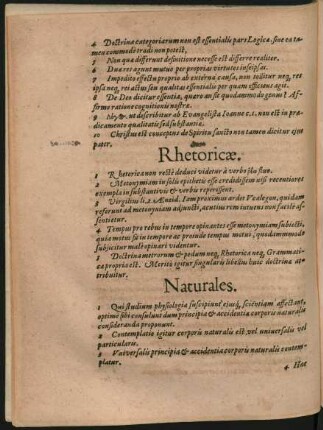 4 Doctrina categoriarum non est essentialis pars Logicæ, sine ea ta-
men commode tradi non potest.
5 Non quæ differunt definitione necesse est differre realiter.
6 Duæ res agunt mutuo per proprias virtutes inseipsas.
7 Impedito effectu proprio ab externa causa, non tollitur neq, rei
ipsa neq, rei actus seu qualitas essentialis per quam efficiens agit.
8 De Deo dicitur essentia, quæratur sit quodammodo genus? Af-
firmo ratione cognitionis nostræ.
9 ut describitur ab Evangelista Ioanne c.1. non est in præ-
dicamento qualitatis sed substantiæ.
10 Christus est conceptus de Spiritu sancto non tamen dicitur ejus
pater.
Rhetoricæ.
1 Rhetoricæ non recte deduci videtur à verbo
2 Metonymiam in solis epithetis esse crediderim nisi recentiores
exempla in substantivis & verbis repressent.
3 Virgilius li.2 Æneid. Iam proximus ardet Vcalegon, quidam
referunt ad metonymiam adjuncti, acutius rem intuens non facile as-
sentietur.
4 Tempus pro rebus in tempore opinantes esse metonymiam subjecti,
quia motus sit in tempore ac proinde tempus motus, quodammodo
subjicitur male opinari videntur.
5 Doctrina metrorum & pedum neq, Rhetoricæ neq, Grammati-
cæ propria est. Merito igitur singularis libellus huic doctrinæ at-
tribuitur.
Naturales.
1 Qui studium physiologiæ suscipiunt ejusq, scientiam affectant,
optime sibi consulunt dum principia & accidentia corporis naturalis
consideranda proponunt.
2 Contemplatio igitur corporis naturalis est vel universalis vel
particularis.
3 Vniversalis principia & accidentia corporis naturalis contem-
platur.
4 Hæc